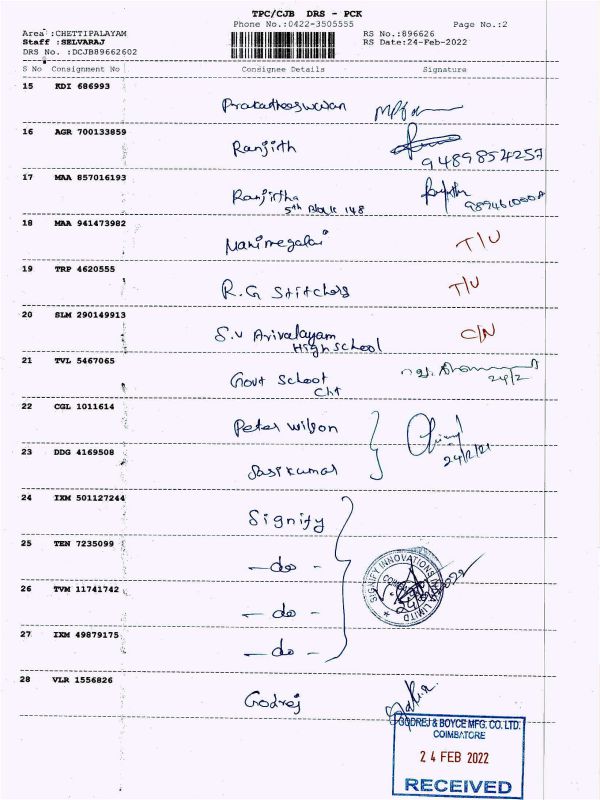 TPC/CJB DRS - PCK
Phone No.:0422-3505555 Page No.:2
Area :CHETTIPALAYAM RS No.:896626
Staff :SELVARAJ RS Date:24-Feb-2022
DRS No. :DCJB89662602
S No Consignment No Consignee Details Signature
15 KDI 686993
16 AGR 700133859
Ranjith
9489854257
17 MAA 857016193
Ranjirtha
5th Block 148
18 MAA 941473982
Manimegalai T/U
19 TRP 4620555
R.G Stitchers T/U
20 SLM 290149913
S.V Arivalayam C/N
High School
21 TVL 5467065
Govt School 24/2
Cht
22 CGL 1011614
Peter Wilson
24/2/21
23 DDG 4169508
Sasikumar
24 IXM 501127244
Signify
25 TEN 7235099
- do -
SIGNIFY INNOVATIONS INDIA LIMITED
26 TVM 11741742
- do -
27 IXM 49879175
- do -
28 VLR 1556826
Godrej
GODREJ & BOYCE MFG. CO. LTD.
COIMBATORE
24 FEB 2022
RECEIVED